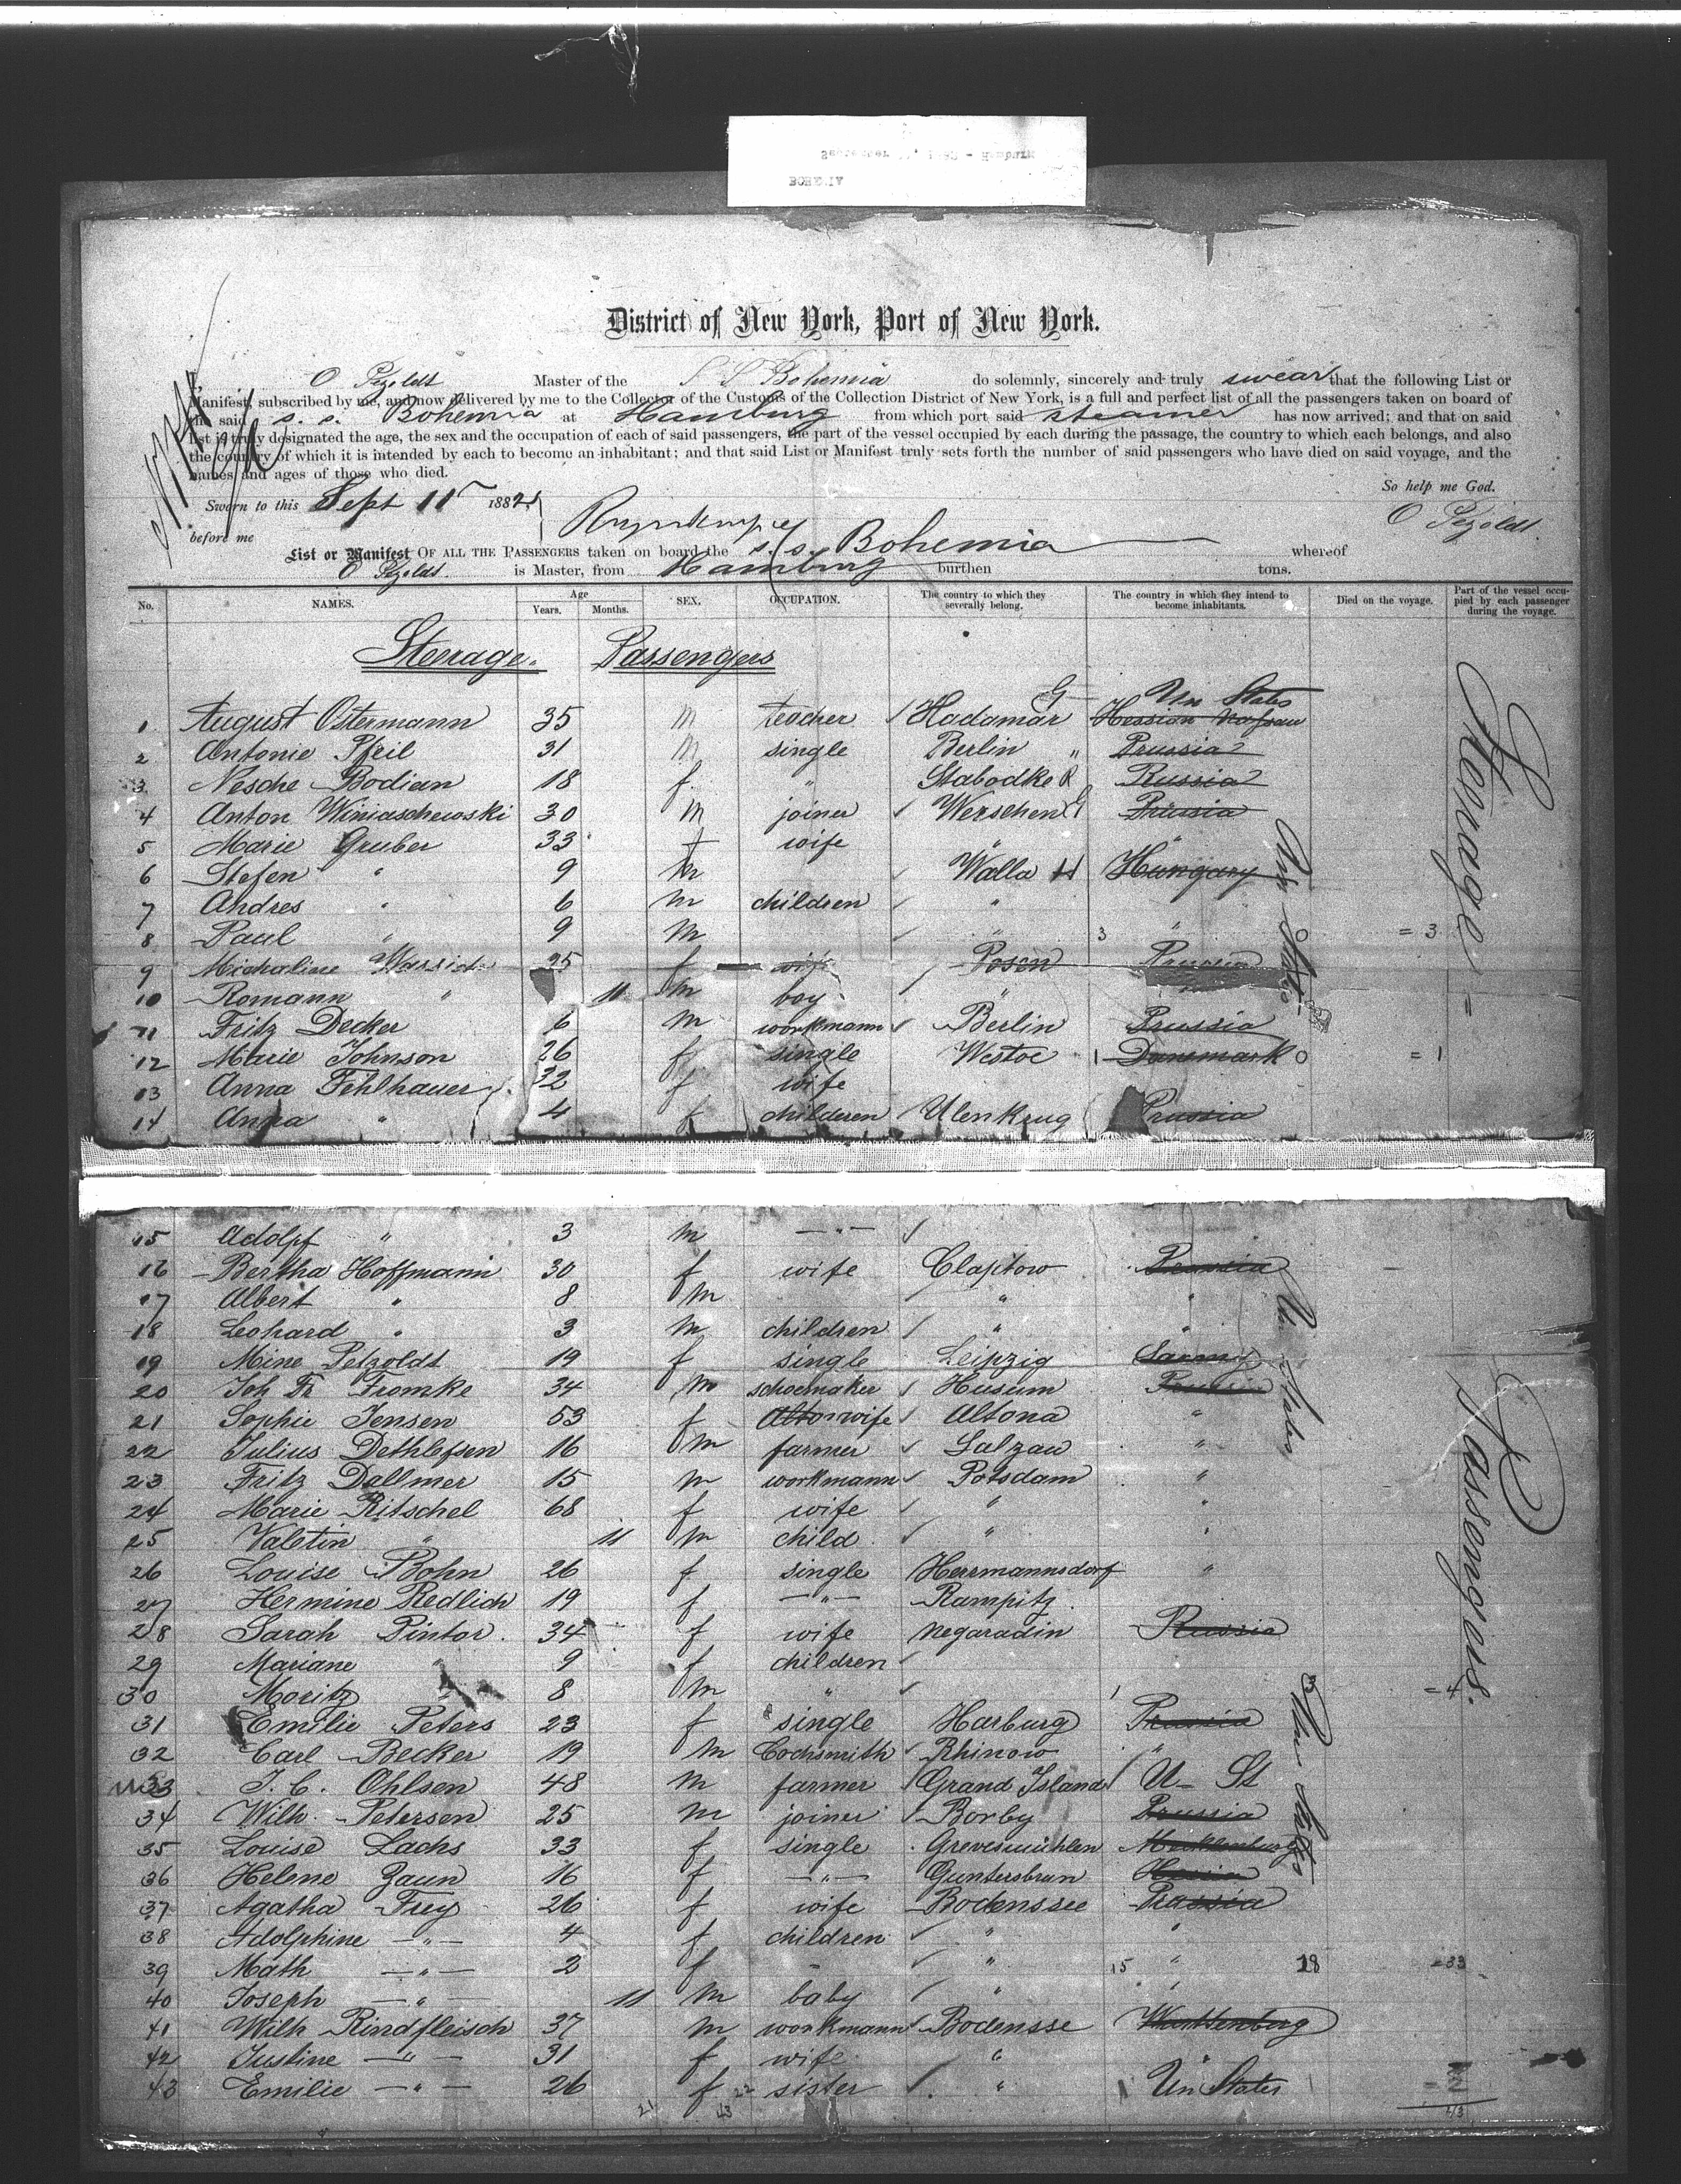 BOHEMIA
District of New York, Port of New York.
I, O Pezoldt Master of the S S Bohemia do solemnly, sincerely and truly swear that the following List or
Manifest, subscribed by me, and now delivered by me to the Collector of the Customs of the Collection District of New York, is a full and perfect list of all the passengers taken on board of
the said s. s. Bohemia at Hamburg from which port said steamer has now arrived; and that on said
list is truly designated the age, the sex and the occupation of each of said passengers, the part of the vessel occupied by each during the passage, the country to which each belongs, and also
the country of which it is intended by each to become an inhabitant; and that said List or Manifest truly sets forth the number of said passengers who have died on said voyage, and the
names and ages of those who died.
So help me God.
Sworn to this Sept 11 1882 O Pezoldt
before me
List or Manifest OF ALL THE PASSENGERS taken on board the s. s. Bohemia whereof
O Pezoldt. is Master, from Hamburg burthen tons.
No. NAMES. Age Years. Months. SEX. OCCUPATION. The country to which they severally belong. The country in which they intend to become inhabitants. Died on the voyage. Part of the vessel occupied by each passenger during the voyage.
Steerage. Passengers
1 August Ostermann 35 m teacher Hadamar G Un States Hessian Nassau
2 Antonie Pfeil 31 m single Berlin " Prussia
3 Nesche Bodian 18 f " Stabodke R Russia
4 Anton Winiaschewski 30 m joiner Werschen G Prussia
5 Marie Gruber 33 f wife " "
6 Stefen " 9 m Walla H Hungary
7 Andres " 6 m children "
8 Paul " 9 m " 3 " 0 = 3
9 Michaline 25 f wife Posen Prussia
10 Romann " 11 m boy "
11 Fritz Decker 6 m workmann Berlin Prussia
12 Marie Johnson 26 f single Westoe 1 Danemark 0 = 1
13 Anna Fehlhauer 32 f wife
14 Anna " 4 f childeren Ulenkrug Prussia
Un States
Steerage =
15 Adolpf " 3 m — " —
16 Bertha Hoffmann 30 f wife Claptow Prussia
17 Albert " 8 m " "
18 Leohard " 3 m children " "
19 Mine Petzoldt 19 f single Leipzig
20 Joh Fr Fromke 34 m schoemaker Husum Prussia
21 Sophie Jensen 53 f wife Altona "
22 Julius Dethlefsen 16 m farmer Salzau "
23 Fritz Dallmer 15 m workmann Potsdam "
24 Marie Ritschel 68 f wife " "
25 Valetin " 11 m child " "
26 Louise Bohn 26 f single Herrmannsdorf "
27 Hermine Redlich 19 f — " — Rampitz
28 Sarah Pintor. 34 f wife Negaradin Russia
29 Mariane " 9 f children
30 Moritz " 8 m " 1 3 = 4
31 Emilie Peters 23 f single Harburg Prussia
32 Carl Becker 19 m Lochsmith Rhinow "
33 J. C. Ohlsen 48 m farmer Grand Island U- St
34 Wilh. Petersen 25 m joiner Borby Prussia
35 Louise Lachs 33 f single Grevesmühlen Mecklenburg
36 Helene Zaun 16 f — " — Guntersbrun Hessia
37 Agatha Frey 26 f wife Bodenssee Prussia
38 Adolphine — " — 4 f children " "
39 Math — " — 2 f " 15 " 18 = 33
40 Joseph — " — 11 m baby " "
41 Wilh Rindfleisch 37 m workmann Bodensse Wurttenberg
42 Justine — " — 31 f wife " "
43 Emilie — " — 26 f sister " 1 Un States = 2
21 43 22 43
Un States
Un States
Passengers.